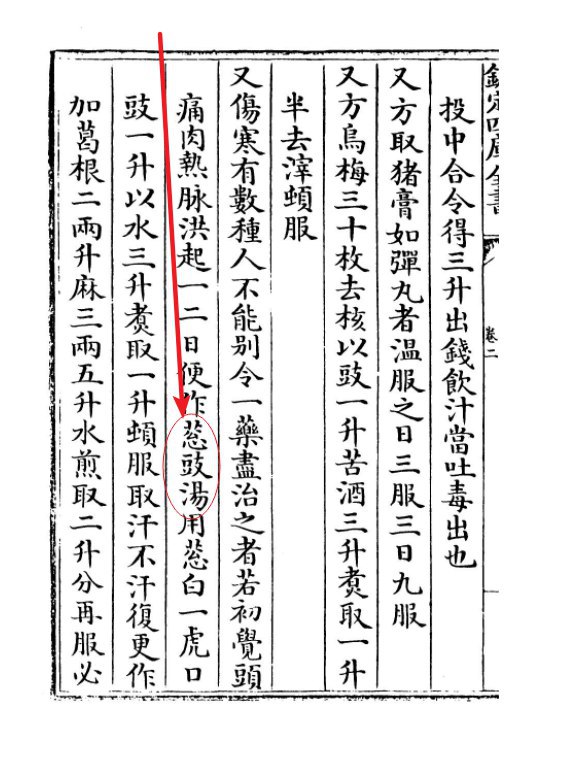 欽定四庫全書
卷二
投中合令得三升出錢飲汁當吐毒出也
又方取猪膏如彈丸者温服之日三服三日九服
又方烏梅三十枚去核以豉一升苦酒三升煑取一升
半去滓頓服
又傷寒有數種人不能别令一藥盡治之者若初覺頭
痛肉熱脉洪起一二日便作葱豉湯用葱白一虎口
豉一升以水三升煑取一升頓服取汗不汗復更作
加葛根二兩升麻三兩五升水煎取二升分再服必